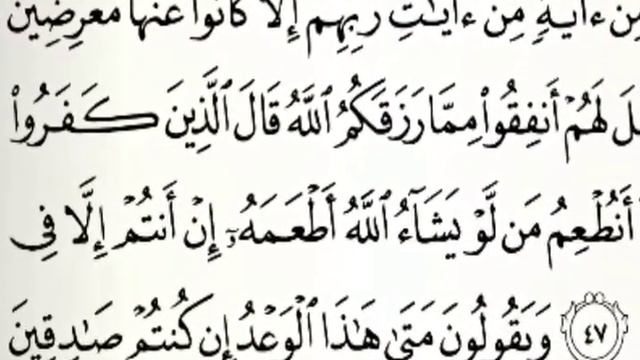 مِّنْ ءَايَةٍ مِّنْ ءَايَٰتِ رَبِّهِمْ إِلَّا كَانُوا۟ عَنْهَا مُعْرِضِينَ
لَهُمْ أَنفِقُوا۟ مِمَّا رَزَقَكُمُ ٱللَّهُ قَالَ ٱلَّذِينَ كَفَرُوا۟
أَنُطْعِمُ مَن لَّوْ يَشَآءُ ٱللَّهُ أَطْعَمَهُۥٓ إِنْ أَنتُمْ إِلَّا فِى
٤٧ وَيَقُولُونَ مَتَىٰ هَٰذَا ٱلْوَعْدُ إِن كُنتُمْ صَٰدِقِينَ